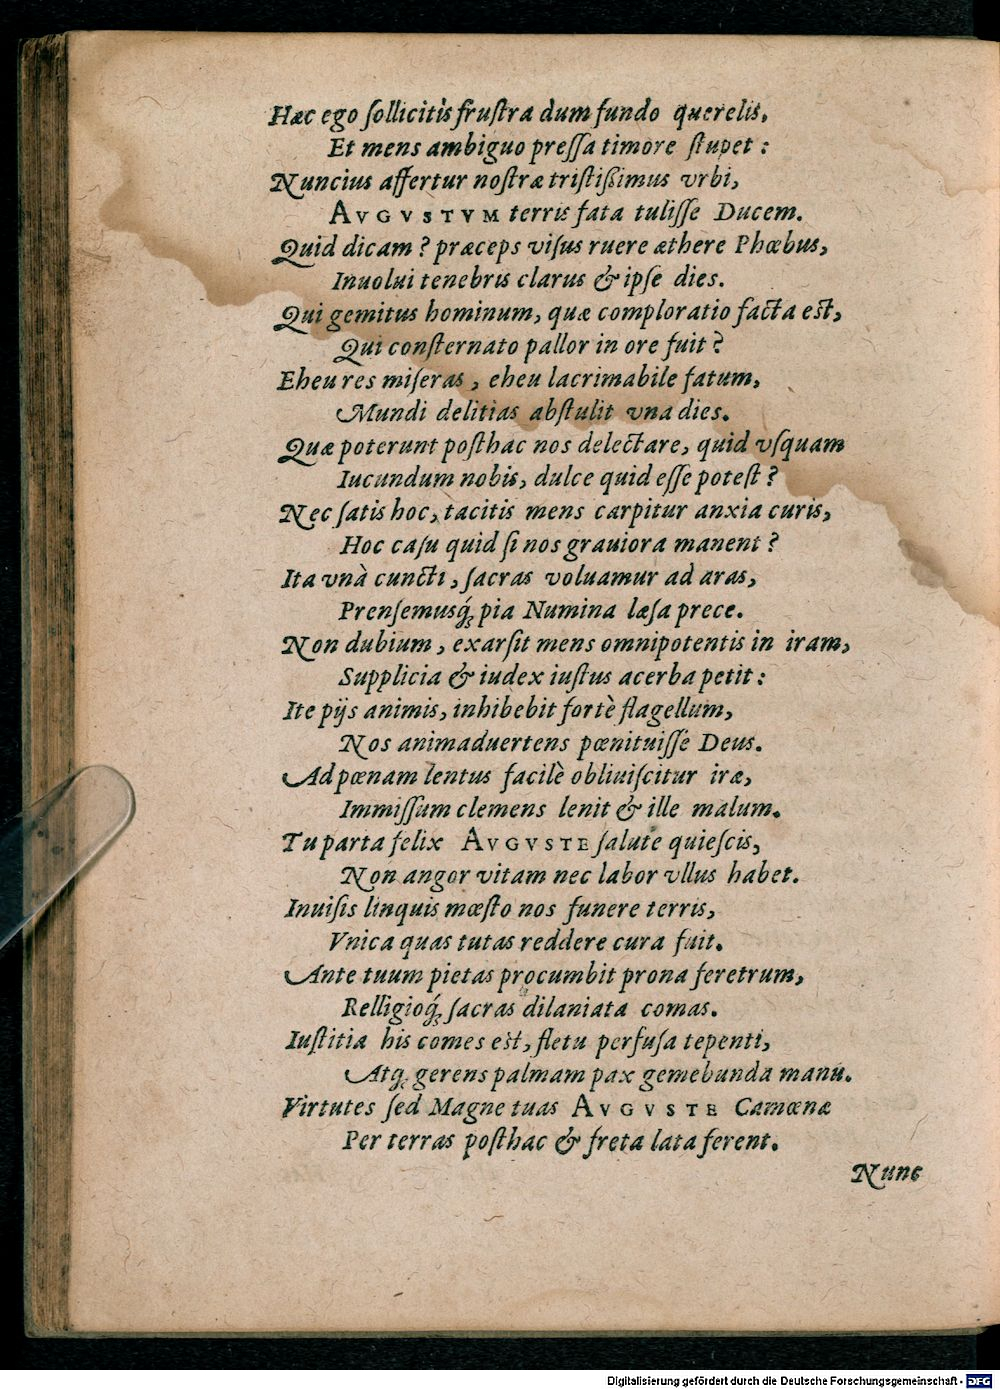 Hæc ego ſollicitis fruſtra dum fundo querelis,
Et mens ambiguo preſſa timore ſtupet:
Nuncius affertur noſtræ triſtiſsimus vrbi,
AVGVSTVM terris fata tuliſſe Ducem.
Quid dicam? præceps viſus ruere æthere Phœbus,
Inuolui tenebris clarus & ipſe dies.
Qui gemitus hominum, quæ comploratio facta eſt,
Qui conſternato pallor in ore fuit?
Eheu res miſeras, eheu lacrimabile fatum,
Mundi delitias abſtulit vna dies.
Quæ poterunt poſthac nos delectare, quid vſquam
Iucundum nobis, dulce quid eſſe poteſt?
Nec ſatis hoc, tacitis mens carpitur anxia curis,
Hoc caſu quid ſi nos grauiora manent?
Ita vnà cuncti, ſacras voluamur ad aras,
Prenſemusq́ꝫ pia Numina læſa prece.
Non dubium, exarſit mens omnipotentis in iram,
Supplicia & iudex iuſtus acerba petit:
Ite pijs animis, inhibebit fortè flagellum,
Nos animaduertens pœnituiſſe Deus.
Ad pœnam lentus facilè obliuiſcitur iræ,
Immiſſum clemens lenit & ille malum.
Tu parta felix AVGVSTE ſalute quieſcis,
Non angor vitam nec labor vllus habet.
Inuiſis linquis mœſto nos funere terris,
Vnica quas tutas reddere cura fuit.
Ante tuum pietas procumbit prona feretrum,
Relligioq́ꝫ ſacras dilaniata comas.
Iuſtitia his comes eſt, fletu perfuſa tepenti,
Atqꝫ gerens palmam pax gemebunda manu.
Virtutes ſed Magne tuas AVGVSTE Camœnæ
Per terras poſthac & freta lata ferent.
Nunc
Digitalisierung gefördert durch die Deutsche Forschungsgemeinschaft - DFG